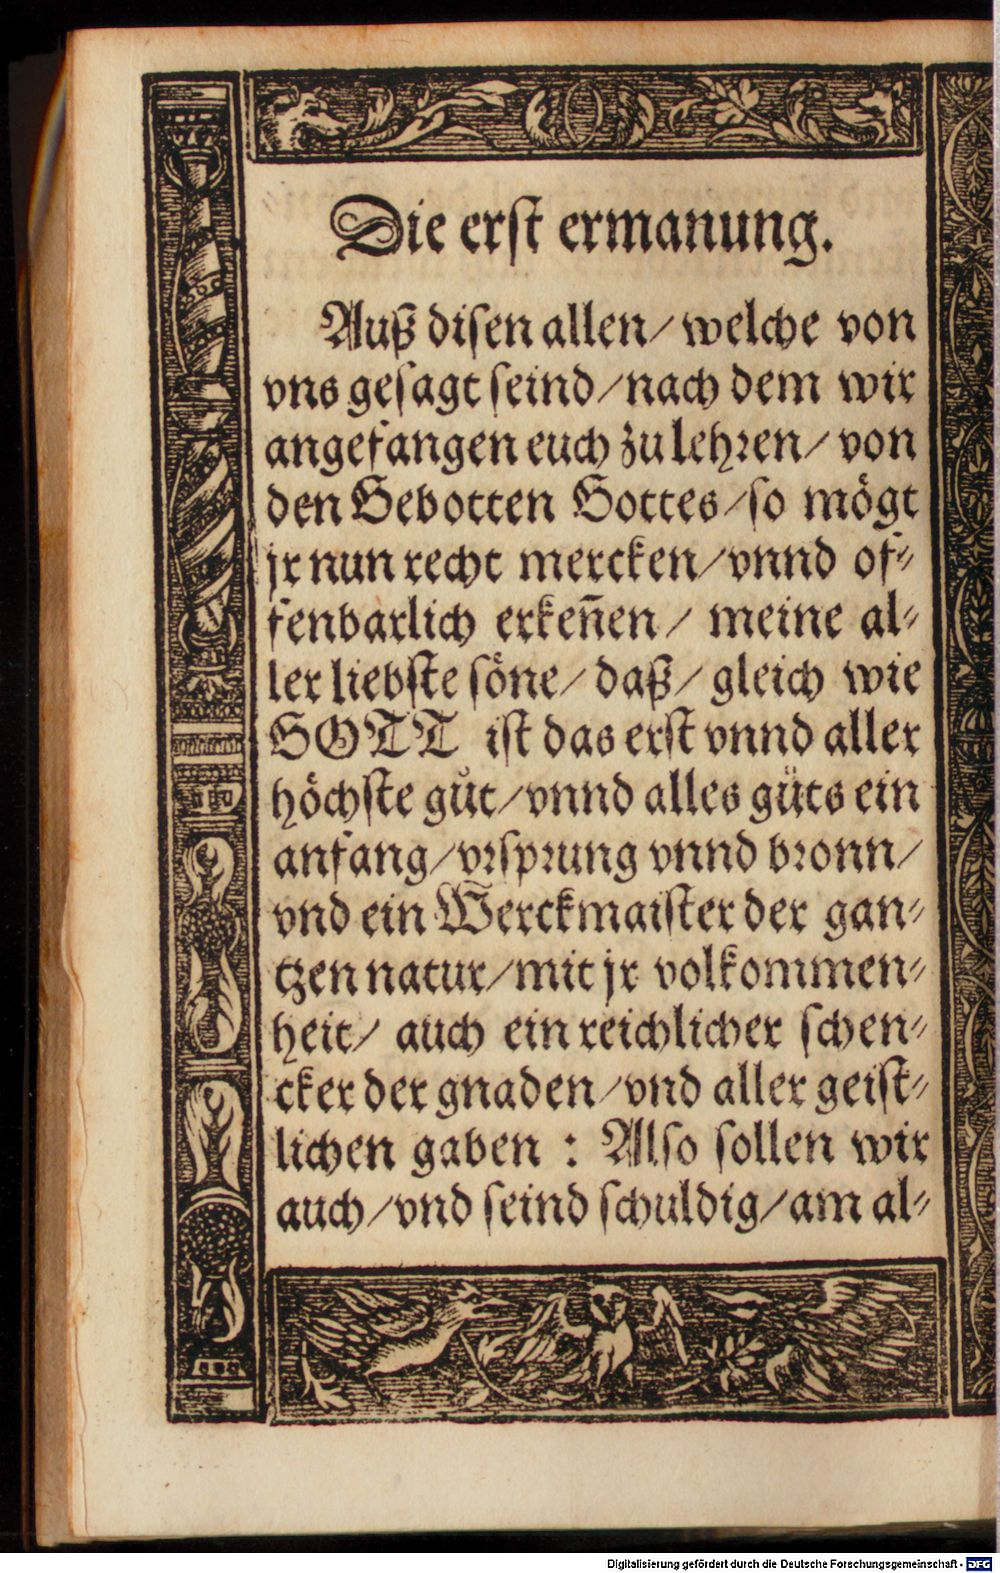 Die erst ermanung.
Auß disen allen/ welche von
vns gesagt seind/ nach dem wir
angefangen euch zu lehren/ von
den Gebotten Gottes/ so mögt
jr nun recht mercken/ vnnd of⸗
fenbarlich erkeñen/ meine al⸗
ler liebste söne/ daß/ gleich wie
GOTT ist das erst vnnd aller
höchste gůt/ vnnd alles gůts ein
anfang/ vrsprung vnnd bronn/
vnd ein Werckmaister der gan⸗
tzen natur/ mit jr volkommen⸗
heit/ auch ein reichlicher schen⸗
cker der gnaden/ vnd aller geist⸗
lichen gaben : Also sollen wir
auch/ vnd seind schuldig/ am al⸗
Digitalisierung gefördert durch die Deutsche Forschungsgemeinschaft - DFG